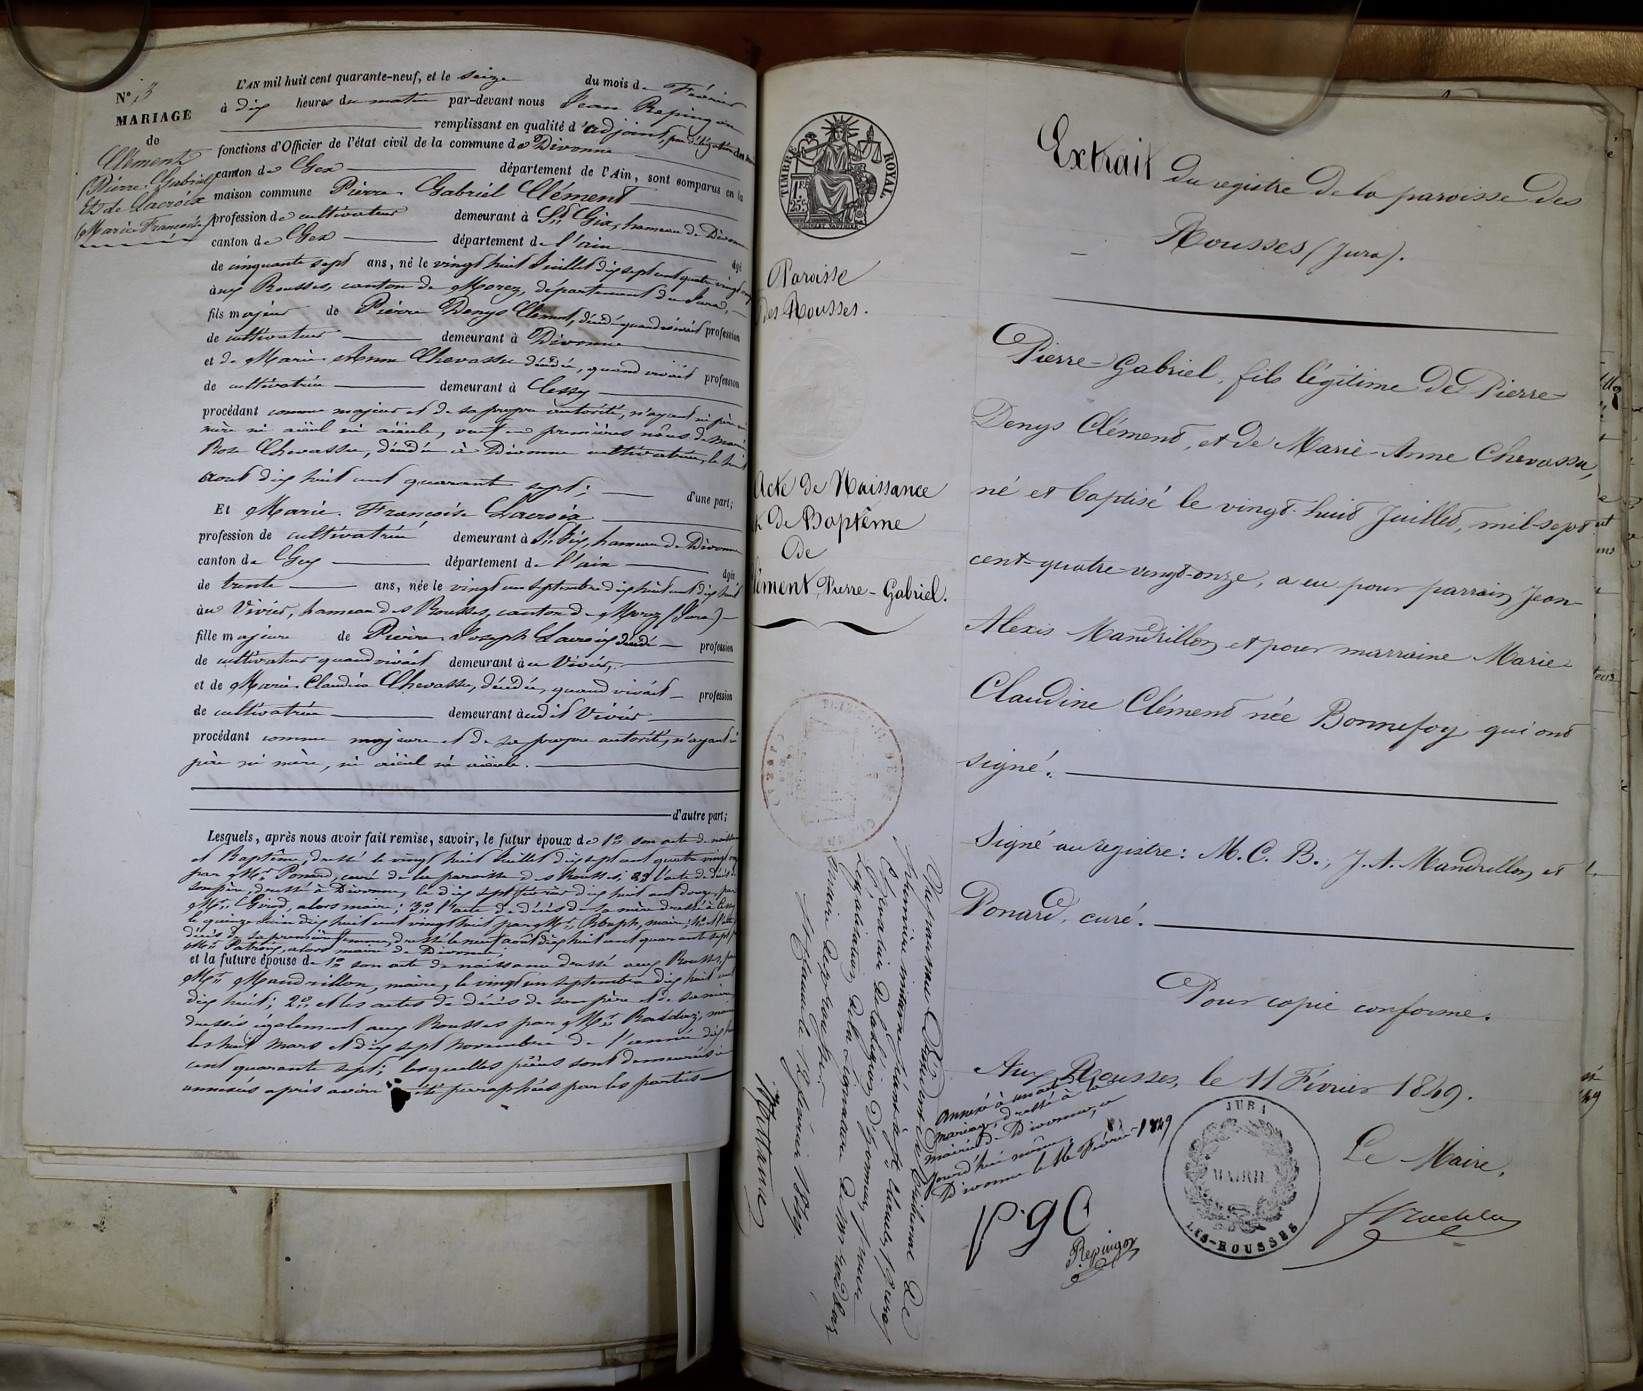 N° 13
MARIAGE
de
Clément
(Pierre Gabriel)
Et de Lacroix
(Marie Françoise)
L'AN mil huit cent quarante-neuf, et le seize du mois de Février
à dix heures du matin par-devant nous Jean Repingon
remplissant en qualité d'adjoint, par délégation des
fonctions d'Officier de l'état civil de la commune de Divonne
canton de Gex département de l'Ain, sont comparus en la
maison commune Pierre Gabriel Clément
profession de cultivateur demeurant à St Gix, hameau de Divonne
canton de Gex département de l'ain âgé
de cinquante sept ans, né le vingt huit Juillet dix sept cent quatre vingt onze
aux Rousses, canton de Morez, département du Jura,
fils majeur de Pierre Denys Clément, décédé quand vivait profession
de cultivateur demeurant à Divonne
et de Marie Anne Chevassu décédée, quand vivait profession
de cultivatrice demeurant à Cessy
procédant comme majeur et de sa propre autorité, n'ayant ni père ni
mère ni aïeul ni aïeule, veuf en premières nôces de Marie
Rose Chevassu, décédée à Divonne cultivatrice, le huit
aout dix huit cent quarante sept; d'une part;
Et Marie Françoise Lacroix
profession de cultivatrice demeurant à St Gix, hameau de Divonne
canton de Gex département de l'ain âgée
de trente ans, née le vingt un septembre dix huit cent dix huit
au Vivier, hameau des Rousses, canton de Morez (Jura)
fille majeure de Pierre Joseph Lacroix décédé profession
de cultivateur quand vivait demeurant au Vivier,
et de Marie Claudine Chevassu, décédée, quand vivait profession
de cultivatrice demeurant audit Vivier
procédant comme majeure et de sa propre autorité, n'ayant ni
père ni mère, ni aïeul ni aïeule.
d'autre part;
Lesquels, après nous avoir fait remise, savoir, le futur époux de 1° son acte de naissance
et Baptême, dressé le vingt huit Juillet dix sept cent quatre vingt onze
par Mr Ponard, curé de la paroisse des Rousses; 2° l'acte de décès de
son père, dressé à Divonne, le dix sept février dix huit cent douze, par
Mr Girod, alors maire; 3° l'acte de décès de sa mère dressé à Cessy
le quinze dix huit cent vingt huit par Mr maire; 4° et l'acte de
décès de sa première femme, dressé le neuf août dix huit cent quarante sept par
Mr Patroux, alors maire de Divonne,
et la future épouse de 1° son acte de naissance dressé aux Rousses, par
Mr Mandrillon, maire, le vingt un septembre dix huit cent
dix huit; 2° et les actes de décès de son père et de sa mère
dressés également aux Rousses par Mr maire
les huit mars et dix sept novembre de l'année dix huit
cent quarante sept; lesquelles pièces sont demeurées ci
annexées après avoir été paraphées par les parties
TIMBRE ROYAL
Paroisse
des Rousses.
Acte de Naissance
et de Baptême
de
Clément Pierre-Gabriel.
Extrait du registre de la paroisse des
Rousses (Jura).
Pierre-Gabriel, fils légitime de Pierre-
Denys Clément, et de Marie-Anne Chevassu,
né et baptisé le vingt-huit Juillet, mil-sept-
cent-quatre-vingt-onze, a eu pour parrain Jean-
Alexis Mandrillon et pour marraine Marie-
Claudine Clément née Bonnefoy qui ont
signé.
Signé au registre: M. C. B., J. A. Mandrillon et
Ponard, curé.
Pour copie conforme.
Aux Rousses, le 11 Février 1849.
Le Maire,
JURA
MAIRIE
LES-ROUSSES
annexé à un acte de
mariage, dressé à la
mairie de Divonne, a
jourd'hui même
Divonne le 16 Février 1849
P g C
Repingon
Vu par nous Président du Tribunal de
première instance séant à St Claude (Jura)